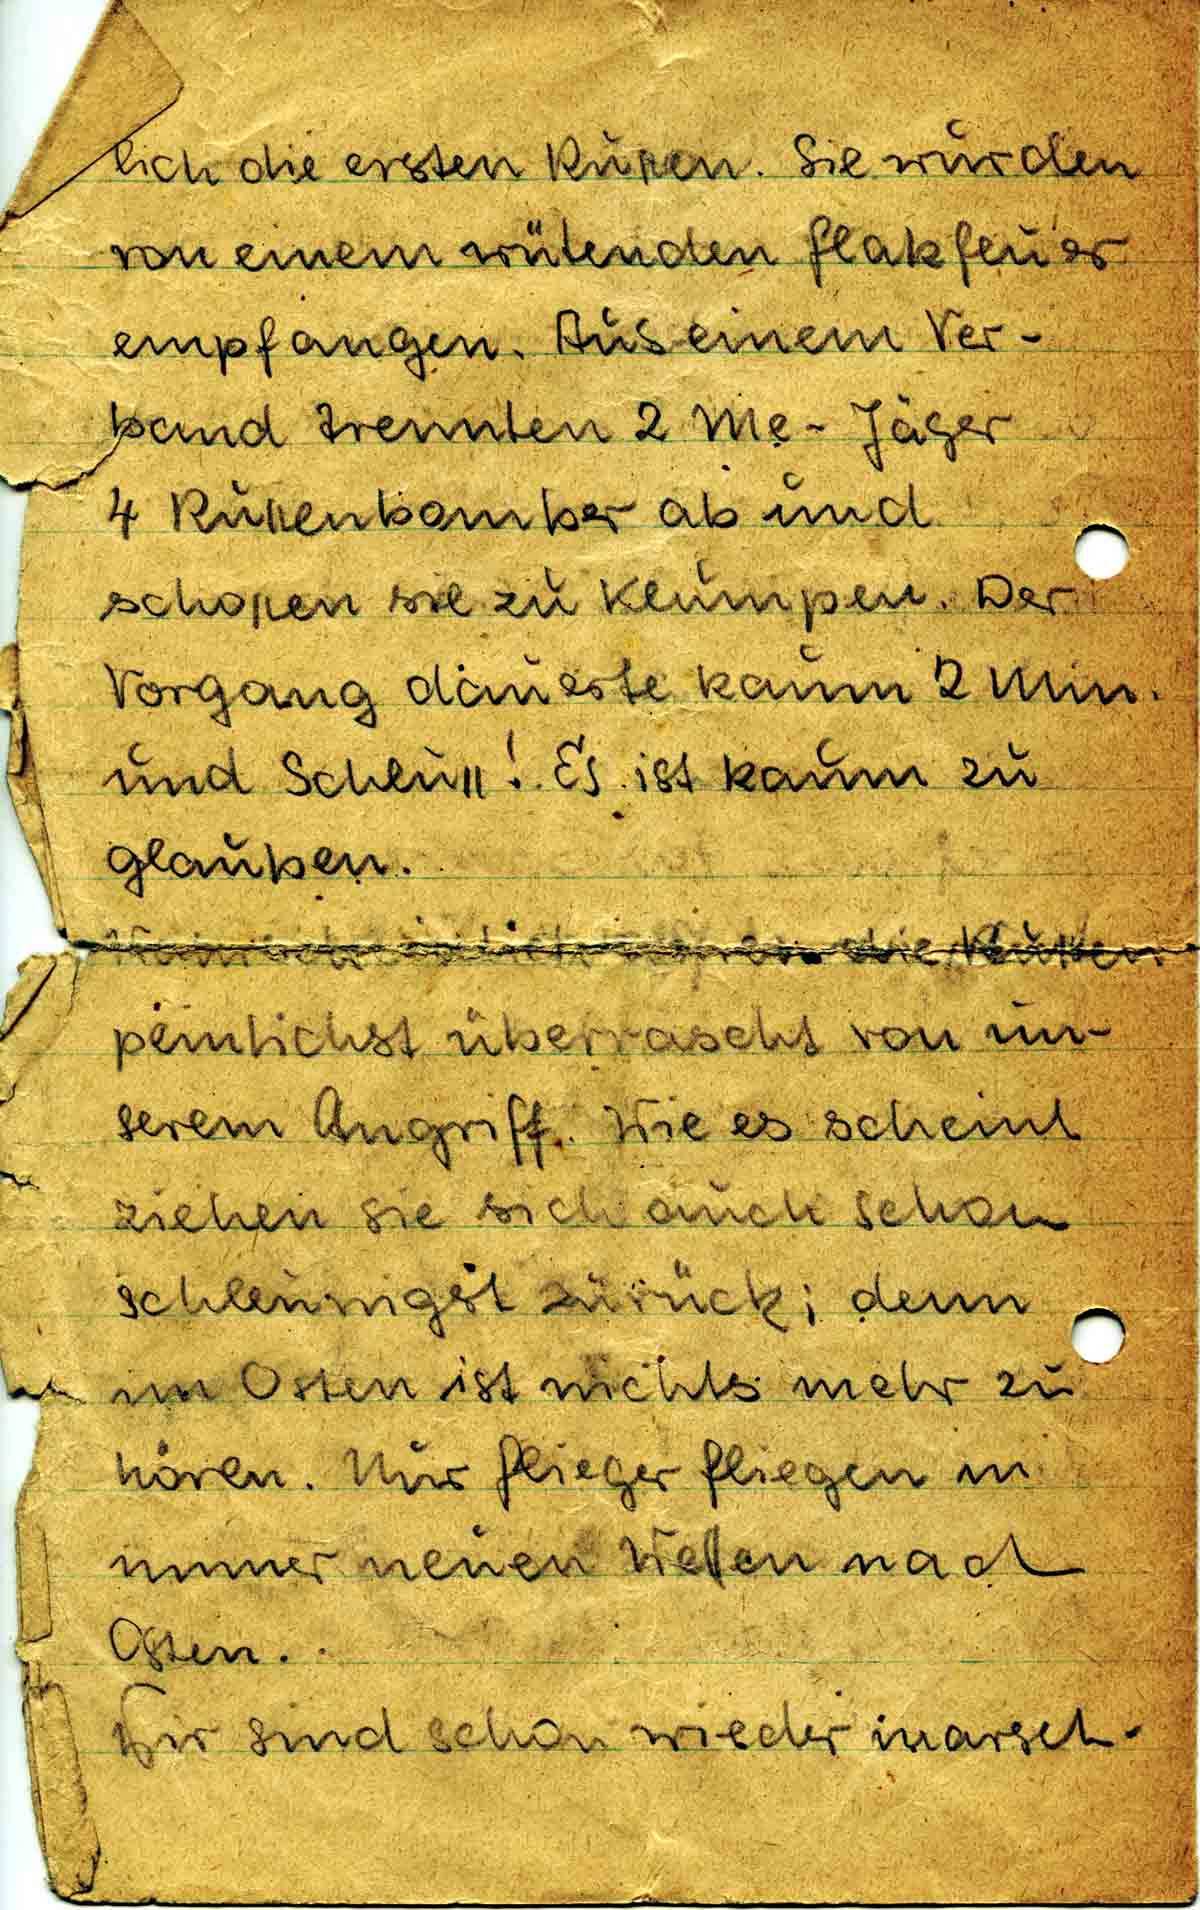 lich die ersten Russen. Sie wurden
von einem wütenden Flakfeuer
empfangen. Aus einem Ver-
band trennten 2 Me-Jäger
4 Russenbomber ab und
schossen sie zu Klumpen. Der
Vorgang dauerte kaum 2 Min.
und Schluss! Es ist kaum zu
glauben.
die Russen
peinlichst überrascht von un-
serem Angriff. Wie es scheint
ziehen sie sich auch schon
schleunigst zurück; denn
im Osten ist nichts mehr zu
hören. Nur Flieger fliegen in
immer neuen Wellen nach
Osten.
Wir sind schon wieder marsch-